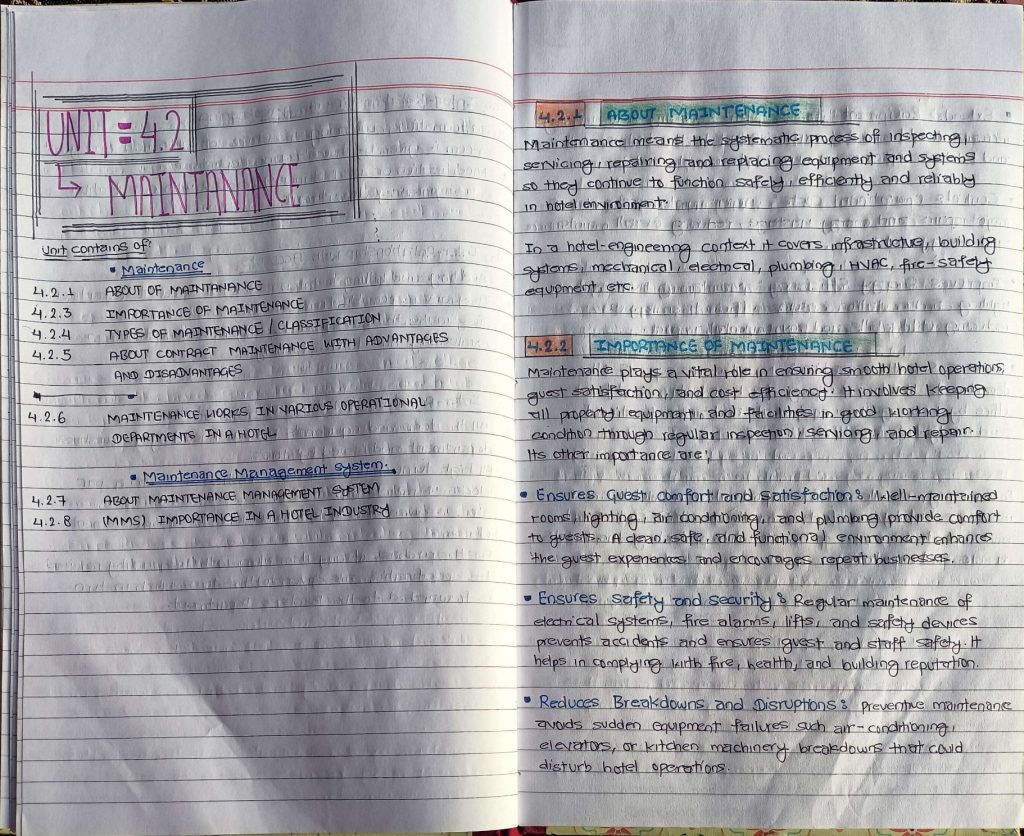 UNIT = 4.2
↳ MAINTANANCE
Unit contains of:
• Maintenance
4.2.1 ABOUT OF MAINTANANCE
4.2.3 IMPORTANCE OF MAINTENANCE
4.2.4 TYPES OF MAINTENANCE / CLASSIFICATION
4.2.5 ABOUT CONTRACT MAINTENANCE WITH ADVANTAGES
AND DISADVANTAGES
4.2.6 MAINTENANCE WORKS IN VARIOUS OPERATIONAL
DEPARTMENTS IN A HOTEL
• Maintenance Management system.
4.2.7 ABOUT MAINTENANCE MANAGEMENT SYSTEM
4.2.8 (MMS) IMPORTANCE IN A HOTEL INDUSTRY
4.2.1 ABOUT MAINTENANCE
Maintenance means the systematic process of inspecting,
servicing, repairing and replacing equipment and systems
so they continue to function safely, efficiently and reliably
in hotel environment.
In a hotel-engineering context it covers infrastructure, building
systems, mechanical, electrical, plumbing, HVAC, fire-safety
equipment, etc.
4.2.2 IMPORTANCE OF MAINTENANCE
Maintenance plays a vital role in ensuring smooth hotel operations,
guest satisfaction, and cost efficiency. It involves keeping
all property, equipment, and facilities in good working
condition through regular inspection, servicing, and repair.
Its other importance are;
• Ensures Guest comfort and satisfaction: Well-maintained
rooms, lighting, air conditioning, and plumbing provide comfort
to guests. A clean, safe, and functional environment enhances
the guest experiences and encourages repeat businesses.
• Ensures safety and security: Regular maintenance of
electrical systems, fire alarms, lifts, and safety devices
prevents accidents and ensures guest and staff safety. It
helps in complying with fire, health, and building reputation.
• Reduces Breakdowns and Disruptions: preventive maintenance
avoids sudden equipment failures such air-conditioning,
elevators, or kitchen machinery breakdowns that could
disturb hotel operations.